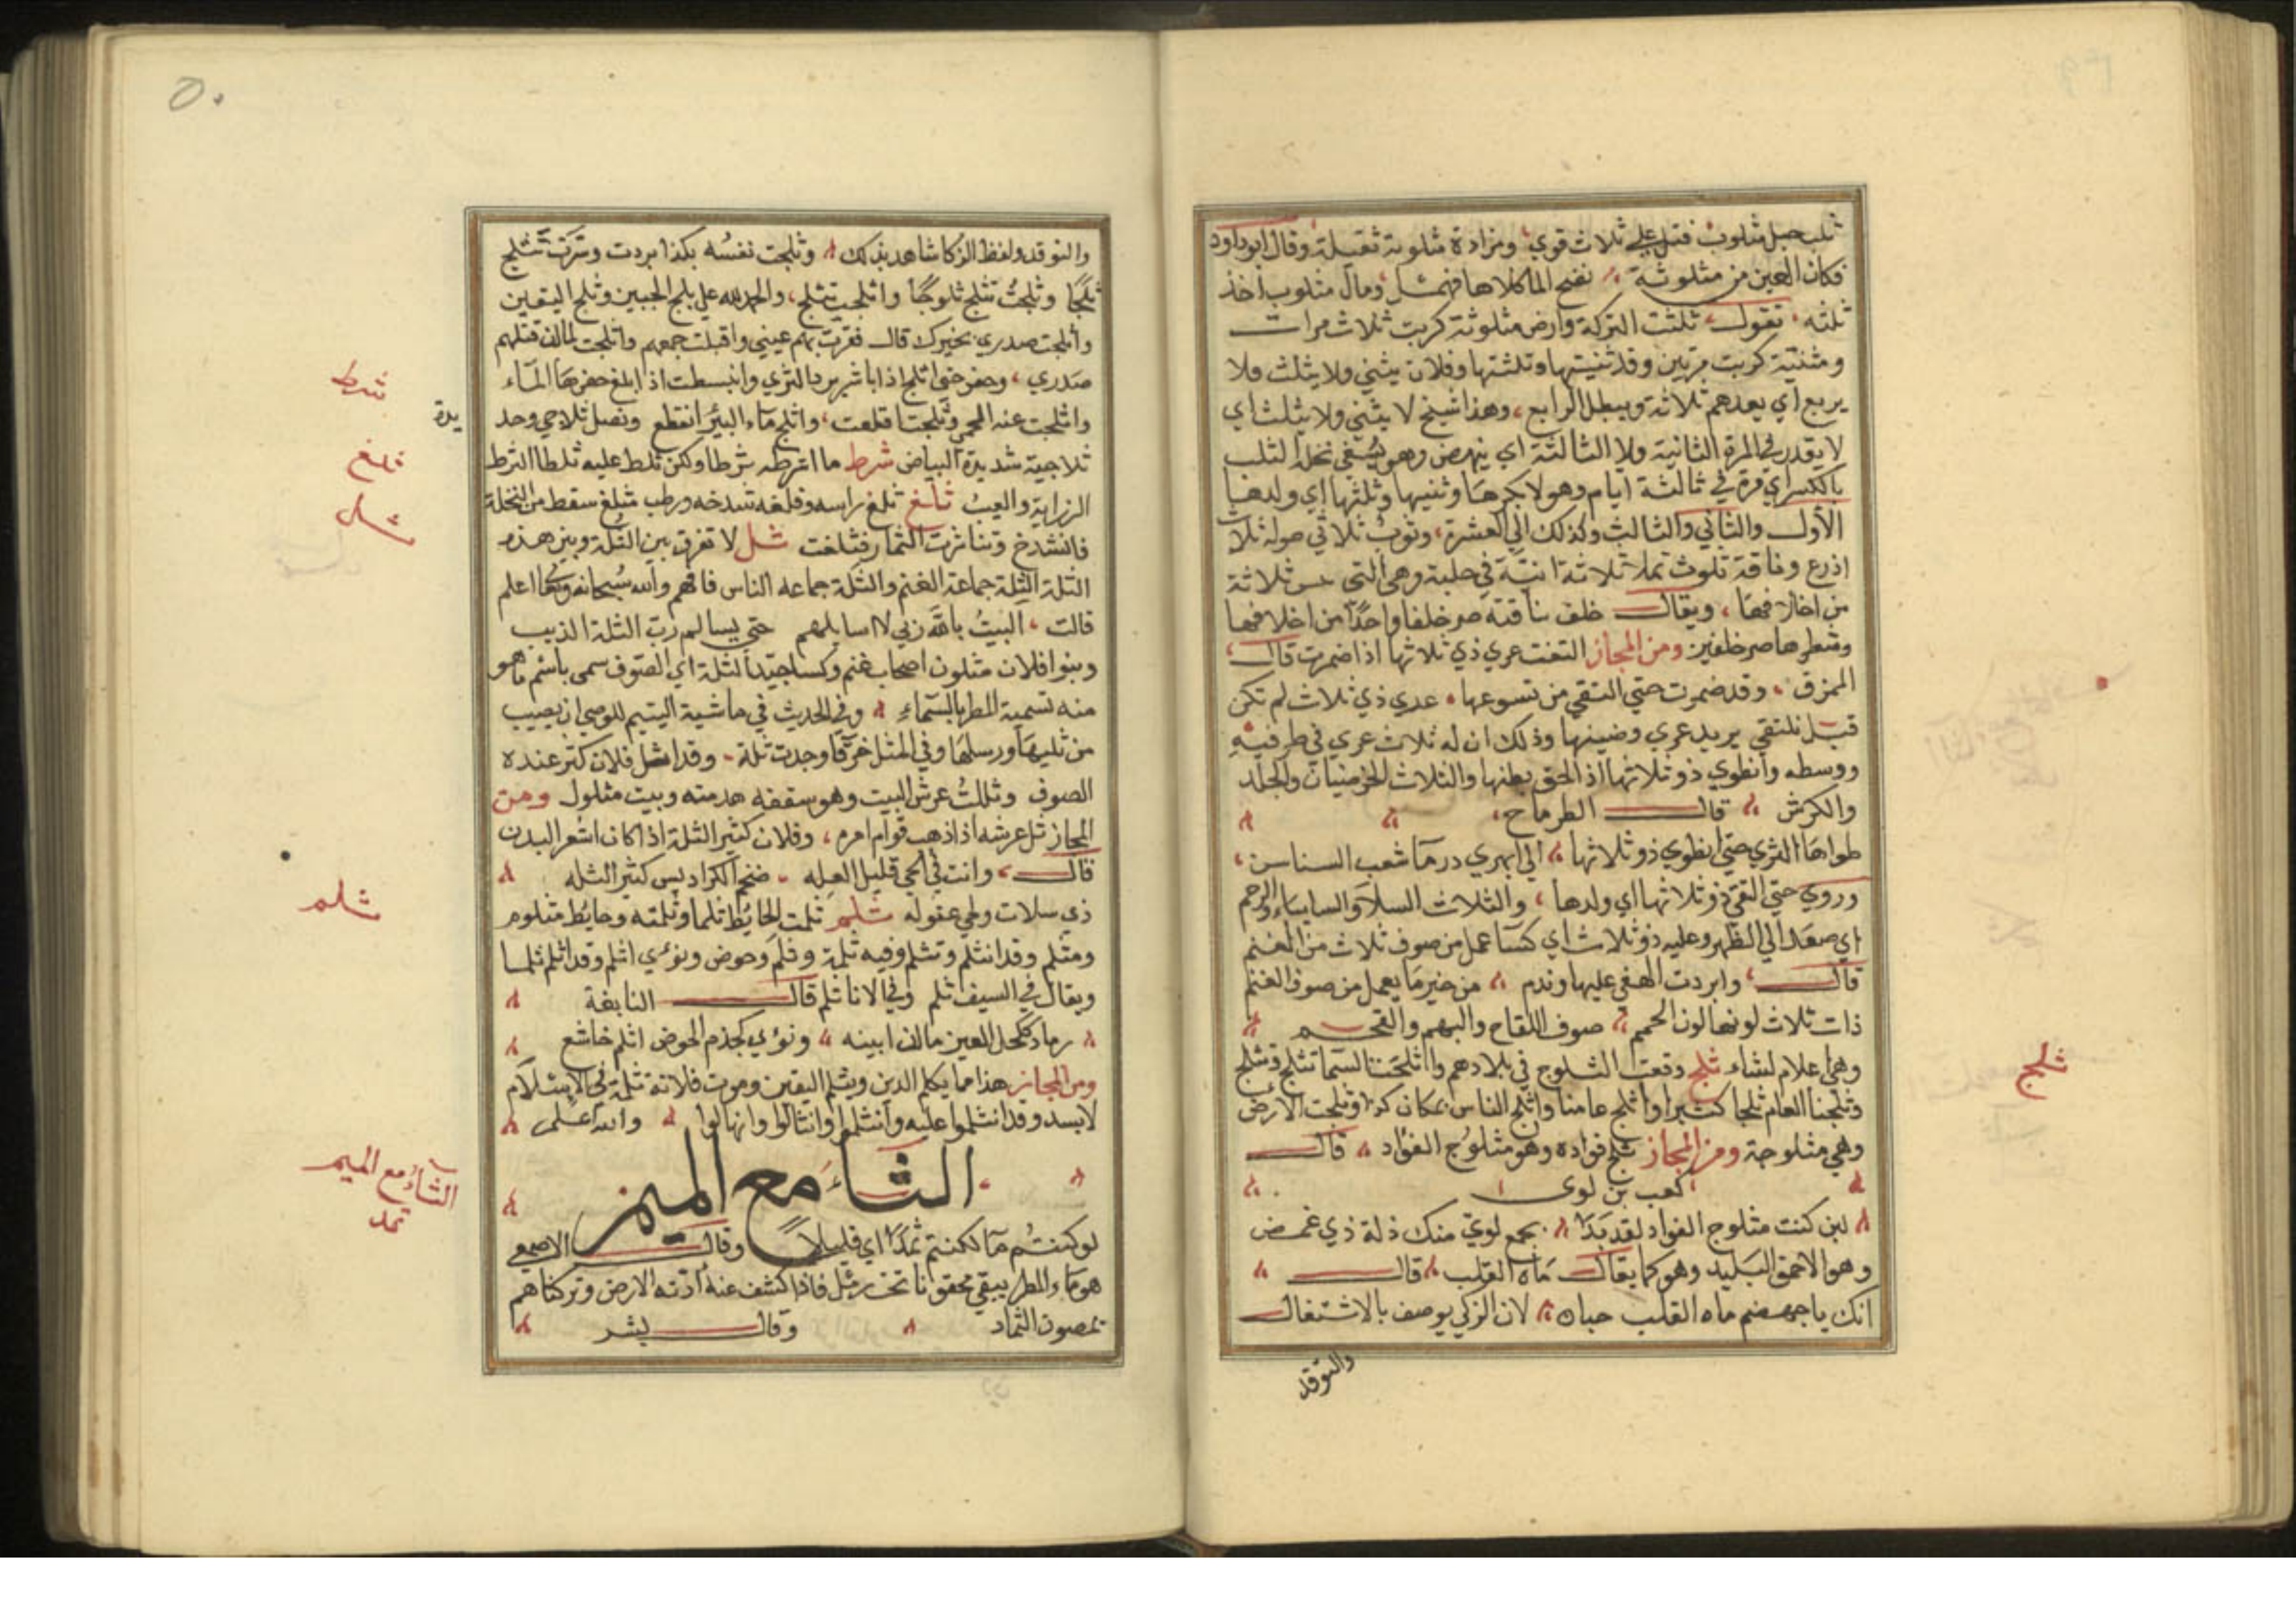 ثلث حبل مثلوث فتل على ثلاث قوي ومزادة مثلوثة ثقيلة وقال ابو داود
فكان العين من مثلوثة نفح الما كلاها فهمشل ومال مثلوث اخذ
ثلثه تقول ثلثت التركة وارض مثلوثة كربت ثلاث مرات
ومثنية كربت مرتين وقد ثنيتها وثلثتها وفلان يثني ولا يثلث ولا
يربع اي يعدهم ثلاثة ويبطل الرابع وهذا شيخ لا يثني ولا يثلث اي
لا يقدر في المرة الثانية ولا الثالثة اي ينهض وهو يسقي نخله الثلث
بالكسر اي مرة في ثالثة ايام وهو لا بكرها وثنيها وثلثها اي ولدها
الاول والثاني والثالث وكذلك الي العشرة وثوب ثلاثي طوله ثلاث
اذرع وناقة ثلوث تملا ثلاثة انية في حلبة وهي التي ثلاثة
من اخلافها ويقال خلف ناقته صر خلفا واحدا من اخلافها
وشطرها صر خلفين ومن المجاز التقت عري ذي ثلاثها اذا ضمرت قال
الممزق وقد ضمرت حتي التقي من نسوعها عدي ذي ثلاث لم تكن
قبل تلتقي يريد عري وضينها وذلك ان له ثلاث عري في طرفيه
ووسطه وانطوي ذو ثلاثها اذا لحق بطنها والثلاث الخرصيان والجلد
والكرش قال الطرماح
طواها الثري حتي انطوي ذو ثلاثها الي ابهري درما شعب السناسن
وروي حتي التقي ذو ثلاثها اي ولدها والثلاث السلا والسابياء والرحم
اي صعد الي الظهر وعليه ذو ثلاث اي كسا عمل من صوف ثلاث من الغنم
قال وابردت الهفي عليها وندم من خير ما يعمل من صوف الغنم
ذات ثلاث لونها لون الحمم صوف اللقاح والبهم والقحم
وهي اعلام لشاء ثلج وقعت الثلوج في بلادهم واثلجتنا السما تثلج وتثلج
وثلجنا العام ثلجا كثيرا واثلج عامنا واثلج الناس بمكان كذا وثلجت الارض
وهي مثلوجة ومن المجاز ثلج فواده وهو مثلوج الفؤاد قال
كعب بن لوى
لين كنت مثلوج الفواد لقد بدا بجمع لوي منك ذلة ذي غمض
وهو الاحمق البليد وهو كما يقال ماه القلب قال
انك يا جهضم ماه القلب لان الزكي يوصف بالاشتغال
والتوقد
ثلج
٥٠
والتوقد ولفظ الزكا شاهد بذلك وثلجت نفسه بكذا بردت وسرت تثلج
ثلجا وثلجت تثلج ثلوجا واثلجت تثلج والحمد لله علي بلج الجبين وثلج اليقين
واثلجت صدري بخبرك قال فقرت بهم عيني واقبلت جمعهم واثلجت لما ان قتلهم
صدري وحفر حتي اثلج اذا باشر برد الثري وانبسطت اذا ابلغ حفرها الماء
واثلجت عنه الحمي وثلجت اقلعت واثلج ماء البئر انقطع ونصل ثلاجي وحد
يدة
ثلاجية شديدة البياض شرط ما اثرطه ثرطا ولكن ثلط عليه ثلطا الثرط
الزراية والعيب ثلغ ثلغ راسه وفلغه شدخه ورطب مثلغ سقط من النخلة
فانشدخ وتناثرت الثمار فثلغت ثلل لا تفرق بين الثلة وبين هذه
الثلة الثلة جماعة الغنم والثلة جماعه الناس فافهم والله سبحانه وتعالى اعلم
قالت البيت بالله ربي لا اسالمهم حتي يسالم رب الثلة الذيب
وبنوا فلان مثلون اصحاب غنم وكسا جيد الثلة اي الصوف سمي باسم ما هو
منه تسمية المطر بالسماء وفي الحديث في ماشية اليتيم للوصي ان يصيب
من ثليها ورسلها وفي المثل خرقا وجدت ثلة وقد اثل فلان كثر عنده
الصوف وثللت عرش البيت وهو سقفه هدمته وبيت مثلول ومن
المجاز ثل عرشه اذا ذهب قوام امره وفلان كثير الثلة اذا كان اشعر البدن
قال وانت في الحي قليل العله ضخم الكراديس كثير الثله
ذي سلات وطي عتوله ثلم ثلمت الحايط ثلما وثلمته وحايط مثلوم
ومثلم وقد انثلم وتثلم وفيه ثلمة وثلم وحوض ونوءي اثلم وقد اثلم ثلما
ويقال في السيف ثلم وفي الانا ثلم قال النابغة
رماد ككحل العين ما ان ابينه ونؤي كجذم الحوض اثلم خاشع
ومن المجاز هذا مما يكلم الدين ويثلم اليقين وموت فلانة ثلمة في الاسلام
لا تسد وقد انثلموا عليه وانثلموا وانثالوا وانهالوا والله اعلم
الثاء مع الميم
لو كنتم ما لكنتم ثمدا اي قليلا وقال الاصمعي
هو ماء المطر يبقي محقونا تحت رمل فاذا كشف عنه ادته الارض وتركناهم
يمصون الثماد وقال بشر
شرط
ثلغ
ثلل
ثلم
الثاء مع الميم
ثمد